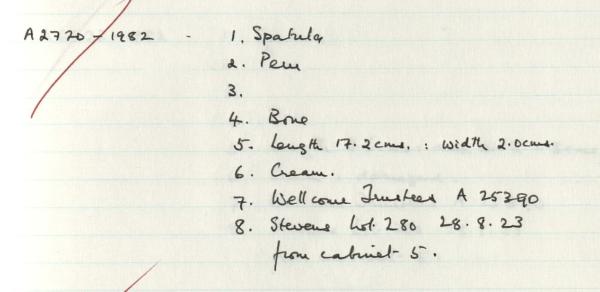 A2720-1982 - 1. Spatula
2. Peru
3.
4. Bone
5. Length 17.2cms. : width 2.0cms.
6. Cream.
7. Wellcome Trustees A 25390
8. Stevens Lot. 280 28.8.23
from cabinet 5.